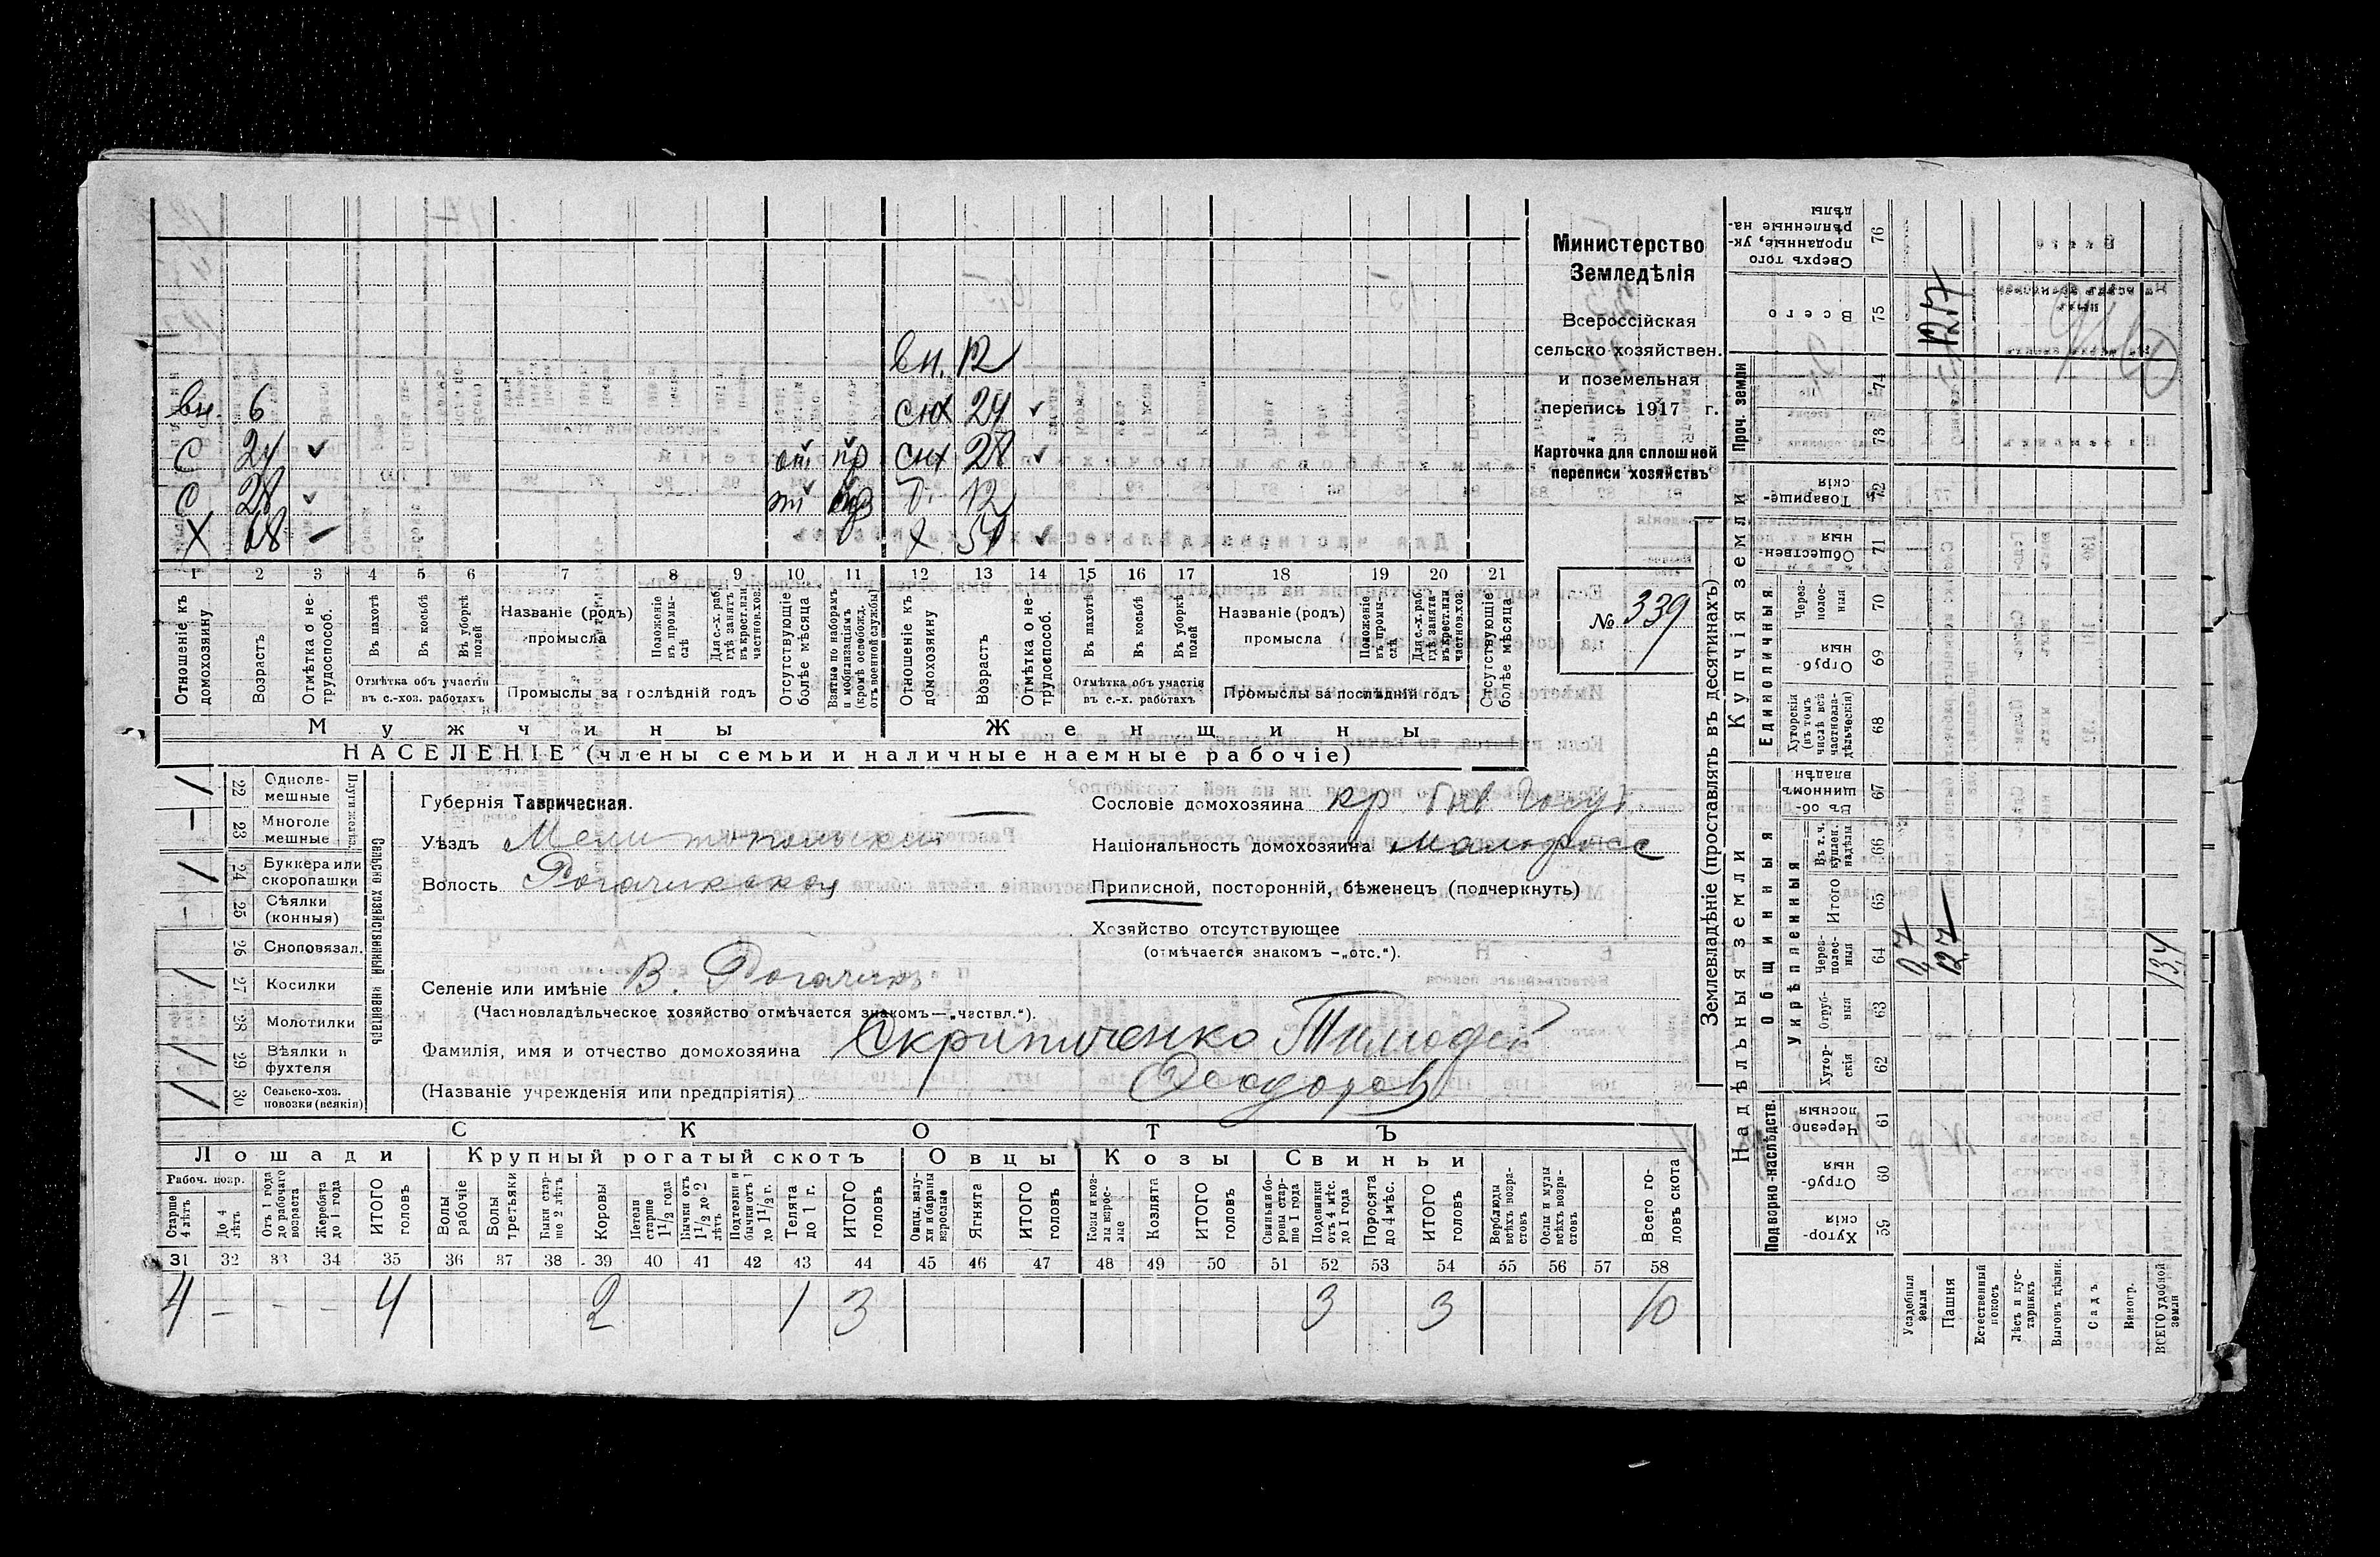 вн. 12
вн. 6 снх 24 ✓
С 24 ✓ от пр снх 28 ✓
С 28 ✓ от д. 12
Х 68 — Х 54 ✓
1 2 3 4 5 6 7 8 9 10 11 12 13 14 15 16 17 18 19 20 21
Отношеніе къ домохозяину
Возрастъ
Отмѣтка о не-трудоспособ.
Въ пахотѣ
Въ косьбѣ
Въ уборкѣ полей
Отмѣтка объ участіи въ с.-хоз. работахъ
Названіе (родъ) промысла
Положеніе въ промы-слѣ
Для с.-х. раб. гдѣ занятъ въ крест. или частнов. хоз.
Промыслы за послѣдній годъ
Отсутствующіе болѣе мѣсяца
Взятые по наборамъ и мобилизаціямъ (кромѣ освобожд. отъ военной службы)
Отношеніе къ домохозяину
Возрастъ
Отмѣтка о не-трудоспособ.
Въ пахотѣ
Въ косьбѣ
Въ уборкѣ полей
Отмѣтка объ участіи въ с.-х. работахъ
Названіе (родъ) промысла
Положеніе въ промы-слѣ
Для с.-х. раб. гдѣ занята въ крест. или частнов. хоз.
Промыслы за послѣдній годъ
Отсутствующіе болѣе мѣсяца
Мужчины Женщины
НАСЕЛЕНІЕ (члены семьи и наличные наемные рабочіе)
Министерство
Земледѣлія
Всероссійская
сельско-хозяйствен.
и поземельная
перепись 1917 г.
Карточка для сплошной
переписи хозяйствъ
№ 339
Сельско-хозяйственный инвентарь
Плуги желѣз.
/ 22 Одноле-мешные
— 23 Многоле мешные
/ 24 Буккера или скоропашки
— 25 Сѣялки (конныя)
26 Сноповязал.
/ 27 Косилки
28 Молотилки
/ 29 Вѣялки и фухтеля
/ 30 Сельско-хоз. повозки (всякія)
Губернія Таврическая.
Уѣздъ Мелитопольскій
Волость Рогачикская
Селеніе или имѣніе В. Рогачик
(Частновладѣльческое хозяйство отмѣчается знакомъ—„частвл.“).
Фамилія, имя и отчество домохозяина Скрипиченко Тимофей
(Названіе учрежденія или предпріятія) Феодоров
Сословіе домохозяина кр
Національность домохозяина малоросс
Приписной, посторонній, бѣженецъ (подчеркнуть)
Хозяйство отсутствующее
(отмѣчается знакомъ —„отс.“).
СКОТЪ
Лошади Крупный рогатый скотъ Овцы Козы Свиньи
Рабоч. возр.
Старше 4 лѣтъ
До 4 лѣтъ
Отъ 1 года до рабочаго возраста
Жеребята до 1 года
ИТОГО головъ
Волы рабочіе
Волы третьяки
Быки стар-ше 2 лѣтъ
Коровы
Нетели старше 1 1/2 года
Бычки отъ 1 1/2 до 2 лѣтъ
Подтелки и бычки отъ 1 до 1 1/2 г.
Телята до 1 г.
ИТОГО головъ
Овцы, валу-хи и бараны взрослые
Ягнята
ИТОГО головъ
Козы и коз-лы взрос-лые
Козлята
ИТОГО головъ
Свиньи и бо-ровы стар-ше 1 года
Подсвинки отъ 4 мѣс. до 1 года
Поросята до 4 мѣс.
ИТОГО головъ
Верблюды всѣхъ возра-стовъ
Ослы и мулы всѣхъ возра-стовъ
Всего го-ловъ скота
31 32 33 34 35 36 37 38 39 40 41 42 43 44 45 46 47 48 49 50 51 52 53 54 55 56 57 58
4 — — — 4 2 1 3 3 3 10
Землевладѣніе (проставлять въ десятинахъ)
Надѣльныя земли Купчія земли Проч. земли
Подворно-наслѣдств.
Общинныя
Укрѣпленныя
Единоличныя
Хутор-скія 59
Отруб-ныя 60
Черезпо-лосныя 61
Хутор-скія 62
Отруб-ныя 63
Через-полос-ныя 64
Итого 65
Въ т. ч. куплен. надѣлы 66
Въ об-щинномъ владѣн. 67
Хуторскія (въ томъ числѣ всѣ частновла-дѣльческія) 68
Отруб-ныя 69
Через-полос-ныя 70
Обществен-ныя 71
Товарище-скія 72
73 74
Всего 75
Сверхъ того проданные, ук-рѣпленные на-дѣлы 76
Усадебныя земли 0,7
Пашня 12,7 — 12,7
Естественный покосъ
Лѣсъ и кус-тарникъ
Выгонъ цѣлин.
Садъ
Виногр.
ВСЕГО удобной земли 13,4